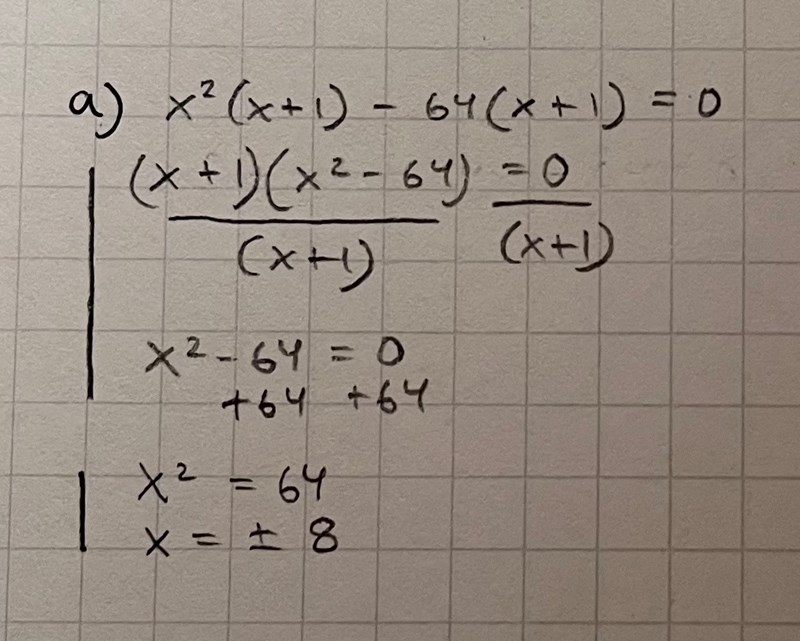 a) x²(x+1) - 64(x+1) = 0
(x+1)(x²-64) = 0
(x+1) (x+1)
x²-64 = 0
+64 +64
x² = 64
x = ± 8